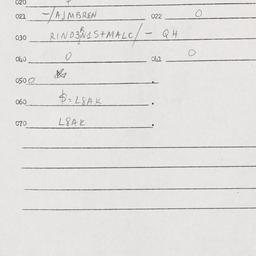 020
021 -/AJMBREN 022 0
030 RINO3N1S+MALC/- QH
040 0 041 0
050
060 $=L8AK.
070 L8AK.